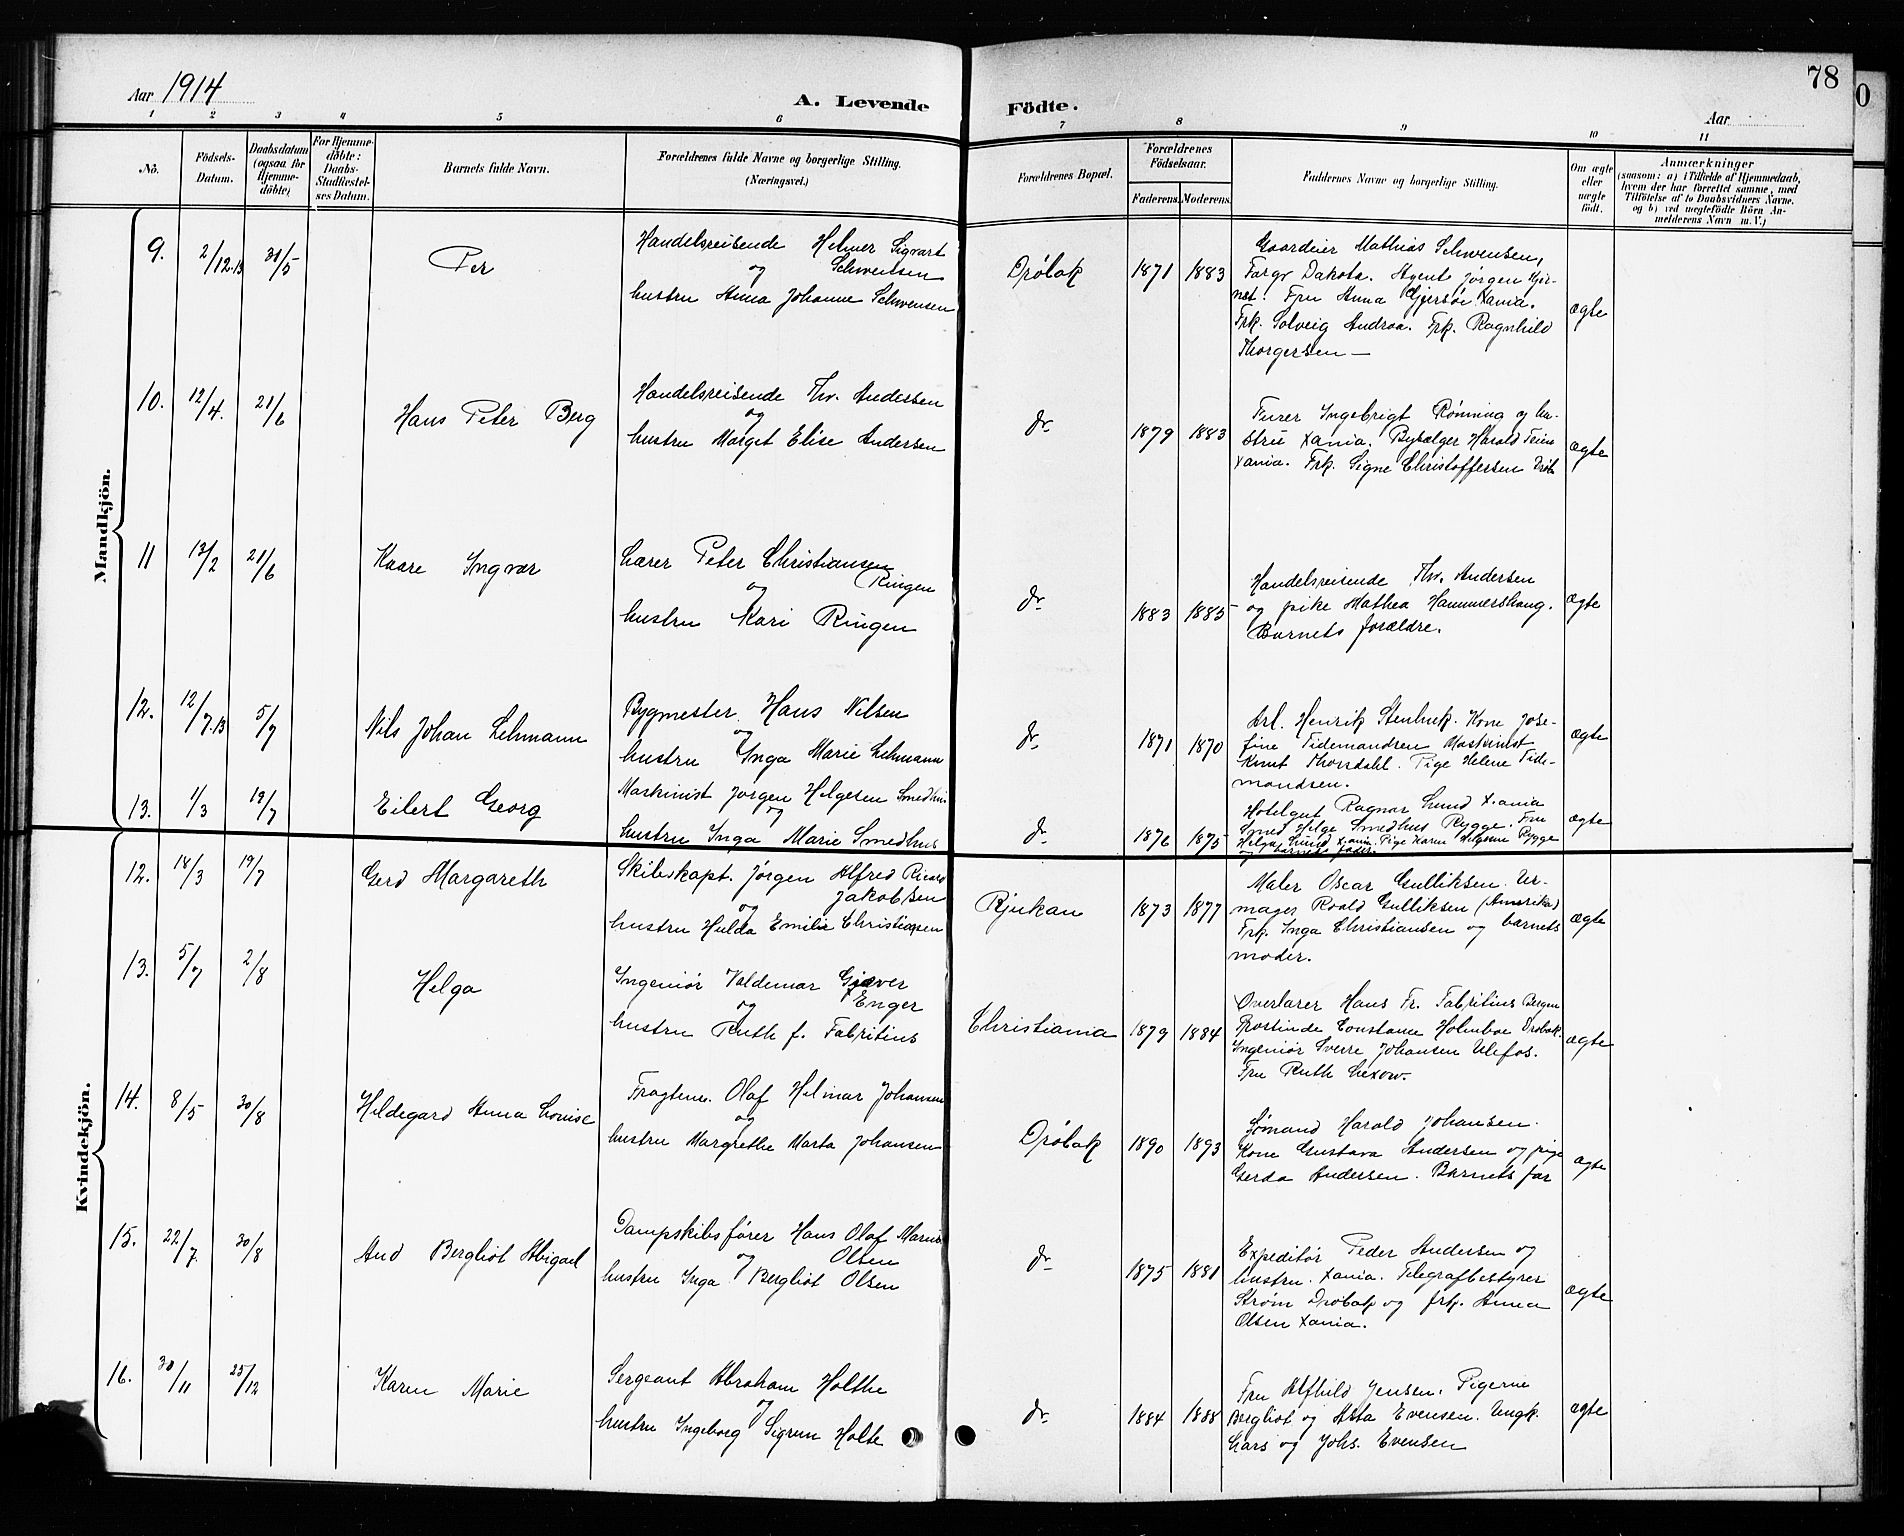 Aar 1914
A. Levende
Födte.
78
Aar
1 2 3 4 5 6 7 8 9 10 11
No.
Födsels-
Datum.
Daabsdatum
(ogsaa for
Hjemme-
döbte)
For Hjemme-
döbte:
Daabs-
Stadfæstel-
ses Datum.
Barnets fulde Navn.
Forældrenes fulde Navne og borgerlige Stilling.
(Næringsvei.)
Forældrenes Bopæl.
Forældrenes
Födselsaar.
Faderens. Moderens.
Faddernes Navne og borgerlige Stilling.
Om ægte
eller
uægte
födt.
Anmærkninger
(saasom: a) i Tilfælde af Hjemmedaab,
hvem der har forrettet samme, med
Tilföielse af to Daabsvidners Navne.
og b) ved uegtefödte Börn An-
melderens Navn m. V.)
Mandkjön.
9. 2/12.13 31/5 Per
Handelsreisende Helmer Sigvart
og Schwensen
hustru Anna Johanne Schwensen
Drøbak 1871 1883
Gaardeier Mathias Schwensen,
Fargo Dakota. Agent Jørgen
Fru Anna Gjersøe Xania.
Frk. Solveig Andraa. Frk. Ragnhild
Thorgersen —
ægte
10. 12/4. 21/6 Hans Peter Berg
Handelsreisende Thv. Andersen
og
hustru Marget Elise Andersen
do. 1879 1883
Furer Ingebrigt Rønning og hu-
stru Xania. Bysælger Harald
Xania. Frk. Signe Christoffersen Drøb
ægte
11 13/2 21/6 Kaare Ingvar
Lærer Peter Christiansen
og Ringen
hustru Kari Ringen
do. 1883 1885
Handelsreisende Thv. Andersen
og pike Mathea Hammershaug.
Barnets forældre.
ægte
12. 12/7.13 5/7 Nils Johan Lehmann
Bygmester Hans Nilsen
og
hustru Inga Marie Lehmann
do. 1871 1870
Arb. Henrik Stenbuk. Kone Jose-
fine Tidemandsen Maskinist
Knut Thorsdahl. Pige Helene Tide-
mandsen.
ægte
13. 1/3 19/7 Eilert Georg
Maskinist Jørgen Helgesen Smedhus
og
hustru Inga Marie Smedhus
do. 1876 1875
Hotelgut Ragnar Lund Xania
Smed Helge Smedhus Rygge. Fru
Helga Lund Xania. Pige Karen Helgesen Rygge
og barnets fader.
ægte
Kvindekjön.
12. 14/3 19/7 Gerd Margareth
Skibskapt. Jørgen Alfred Ricard
og Jakobsen
hustru Hulda Emilie Christiansen
Rjukan 1873 1877
Maler Oscar Gulliksen. Ur-
mager Roald Gulliksen (Amerika)
Frk. Inga Christiansen og barnets
moder.
ægte
13. 5/7 2/8 Helga
Ingeniør Valdemar Gjæver
og Enger
hustru Ruth f. Fabritius
Christiania 1879 1884
Overlærer Hans Fr. Fabritius Bergen
Prostinde Constance Holmboe Drøbak.
Ingeniør Sverre Johansen Ulefos.
Fru Ruth Lexow.
ægte
14. 8/5 30/8 Hildegard Anna Louise
Fragtem. Olaf Helmar Johansen
og
hustru Margrethe Marta Johansen
Drøbak 1890 1893
Sømand Harald Johansen.
Kone Gustava Andersen og pige
Gerda Andersen. Barnets far
ægte
15. 22/7. 30/8 Aud Bergliot Abigael
Dampskibsfører Hans Olaf Marius
og Olsen
hustru Inga Bergliot Olsen
do. 1875 1881
Expeditør Peder Andersen og
hustru. Xania. Telegrafbestyrer
Strøm Drøbak og frk. Anna
Olsen Xania.
ægte
16. 30/11 25/12 Karen Marie
Sergeant Abraham Holthe
og
hustru Ingeborg Sigrun Holte
do. 1884 1888
Fru Alfhild Jensen. Pigerne
Bergliot og Asta Evensen. Ungk.
Lars og Johs. Evensen
ægte